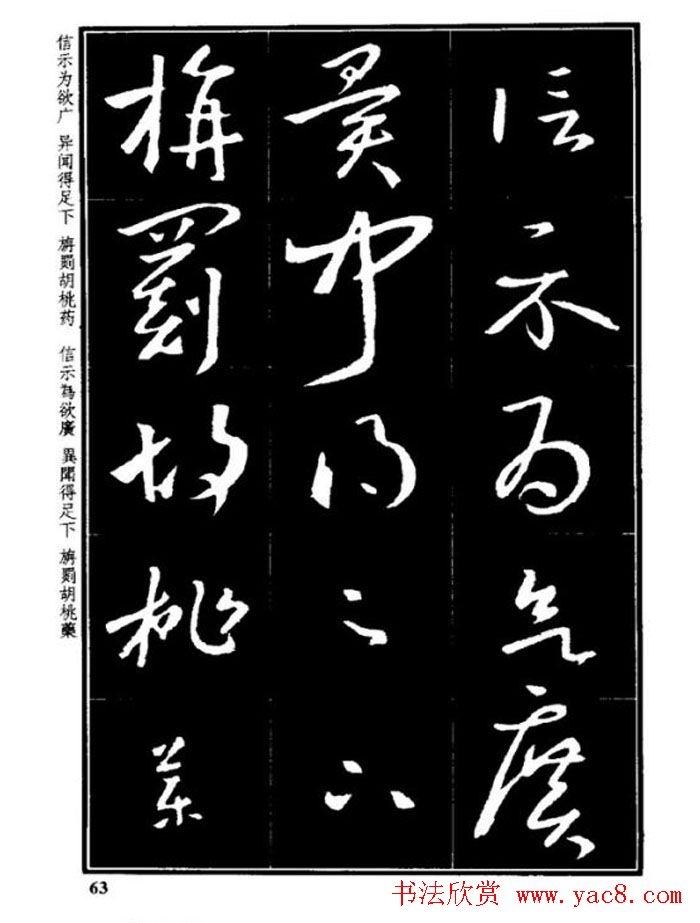 信示为欲廣
異聞得足下
旃罽胡桃藥
信示为欲广 异闻得足下 旃罽胡桃药 信示為欲廣 異聞得足下 旃罽胡桃藥
63
书法欣赏 www.yac8.com